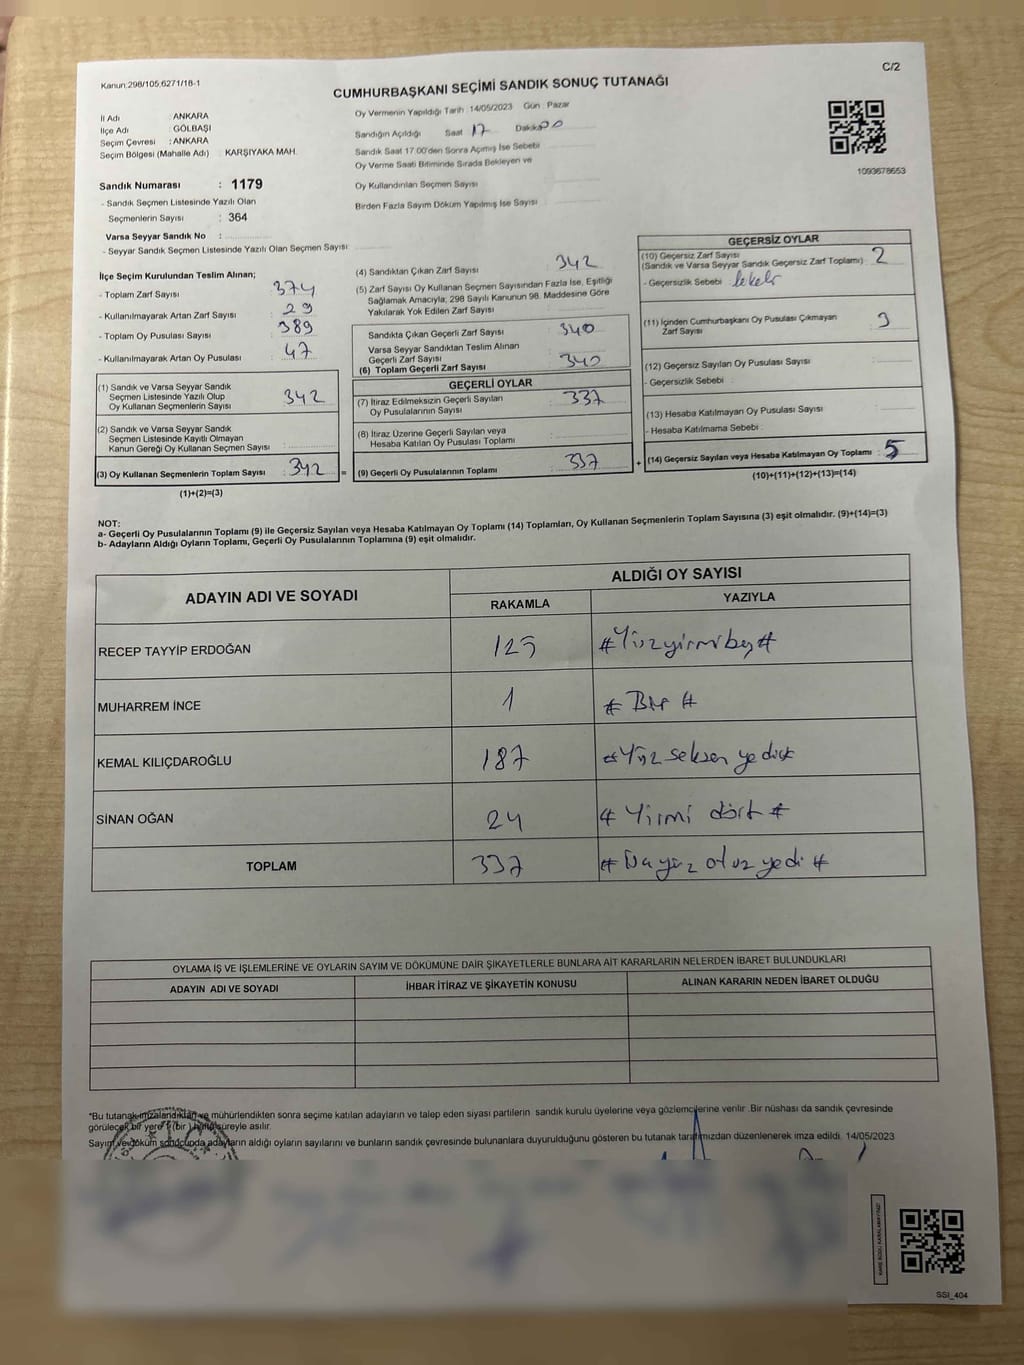 Kanun:298/105,6271/18-1
C/2
CUMHURBAŞKANI SEÇİMİ SANDIK SONUÇ TUTANAĞI
İl Adı : ANKARA
İlçe Adı : GÖLBAŞI
Seçim Çevresi : ANKARA
Seçim Bölgesi (Mahalle Adı) : KARŞIYAKA MAH.
Oy Vermenin Yapıldığı Tarih : 14/05/2023 Gün : Pazar
Sandığın Açıldığı Saat 17 Dakika 00
Sandık Saat 17:00'den Sonra Açımış İse Sebebi
Oy Verme Saati Bitiminde Sırada Bekleyen ve
Oy Kullandırılan Seçmen Sayısı
Birden Fazla Sayım Döküm Yapılmış İse Sayısı
1093678653
Sandık Numarası : 1179
- Sandık Seçmen Listesinde Yazılı Olan
Seçmenlerin Sayısı : 364
Varsa Seyyar Sandık No :
- Seyyar Sandık Seçmen Listesinde Yazılı Olan Seçmen Sayısı:
İlçe Seçim Kurulundan Teslim Alınan;
- Toplam Zarf Sayısı : 374
- Kullanılmayarak Artan Zarf Sayısı : 29
- Toplam Oy Pusulası Sayısı : 389
- Kullanılmayarak Artan Oy Pusulası : 47
(1) Sandık ve Varsa Seyyar Sandık
Seçmen Listesinde Yazılı Olup
Oy Kullanan Seçmenlerin Sayısı : 342
(2) Sandık ve Varsa Seyyar Sandık
Seçmen Listesinde Kayıtlı Olmayan
Kanun Gereği Oy Kullanan Seçmen Sayısı :
(3) Oy Kullanan Seçmenlerin Toplam Sayısı : 342
(1)+(2)=(3)
(4) Sandıktan Çıkan Zarf Sayısı : 342
(5) Zarf Sayısı Oy Kullanan Seçmen Sayısından Fazla İse, Eşitliği
Sağlamak Amacıyla; 298 Sayılı Kanunun 98. Maddesine Göre
Yakılarak Yok Edilen Zarf Sayısı
Sandıkta Çıkan Geçerli Zarf Sayısı : 340
Varsa Seyyar Sandıktan Teslim Alınan
Geçerli Zarf Sayısı
(6) Toplam Geçerli Zarf Sayısı : 340
GEÇERLİ OYLAR
(7) İtiraz Edilmeksizin Geçerli Sayılan
Oy Pusulalarının Sayısı : 337
(8) İtiraz Üzerine Geçerli Sayılan veya
Hesaba Katılan Oy Pusulası Toplamı :
= (9) Geçerli Oy Pusulalarının Toplamı : 337
GEÇERSİZ OYLAR
(10) Geçersiz Zarf Sayısı
(Sandık ve Varsa Seyyar Sandık Geçersiz Zarf Toplamı) : 2
- Geçersizlik Sebebi : lekeli
(11) İçinden Cumhurbaşkanı Oy Pusulası Çıkmayan
Zarf Sayısı : 3
(12) Geçersiz Sayılan Oy Pusulası Sayısı :
- Geçersizlik Sebebi :
(13) Hesaba Katılmayan Oy Pusulası Sayısı :
- Hesaba Katılmama Sebebi :
+ (14) Geçersiz Sayılan veya Hesaba Katılmayan Oy Toplamı : 5
(10)+(11)+(12)+(13)=(14)
NOT:
a- Geçerli Oy Pusulalarının Toplamı (9) ile Geçersiz Sayılan veya Hesaba Katılmayan Oy Toplamı (14) Toplamları, Oy Kullanan Seçmenlerin Toplam Sayısına (3) eşit olmalıdır. (9)+(14)=(3)
b- Adayların Aldığı Oyların Toplamı, Geçerli Oy Pusulalarının Toplamına (9) eşit olmalıdır.
ADAYIN ADI VE SOYADI ALDIĞI OY SAYISI
RAKAMLA YAZIYLA
RECEP TAYYİP ERDOĞAN 125 #Yüzyirmibeş#
MUHARREM İNCE 1 # Bir #
KEMAL KILIÇDAROĞLU 187 #Yüz seksen yedi#
SİNAN OĞAN 24 # Yirmi dört #
TOPLAM 337 # Üç yüz otuz yedi #
OYLAMA İŞ VE İŞLEMLERİNE VE OYLARIN SAYIM VE DÖKÜMÜNE DAİR ŞİKAYETLERLE BUNLARA AİT KARARLARIN NELERDEN İBARET BULUNDUKLARI
ADAYIN ADI VE SOYADI İHBAR İTİRAZ VE ŞİKAYETİN KONUSU ALINAN KARARIN NEDEN İBARET OLDUĞU
*Bu tutanak imzalandıktan ve mühürlendikten sonra seçime katılan adayların ve talep eden siyasi partilerin sandık kurulu üyelerine veya gözlemcilerine verilir. Bir nüshası da sandık çevresinde
görülecek bir yere 1 (bir) hafta süreyle asılır.
Sayım ve döküm sonucunda adayların aldığı oyların sayılarını ve bunların sandık çevresinde bulunanlara duyurulduğunu gösteren bu tutanak tarafımızdan düzenlenerek imza edildi. 14/05/2023
SSI_404